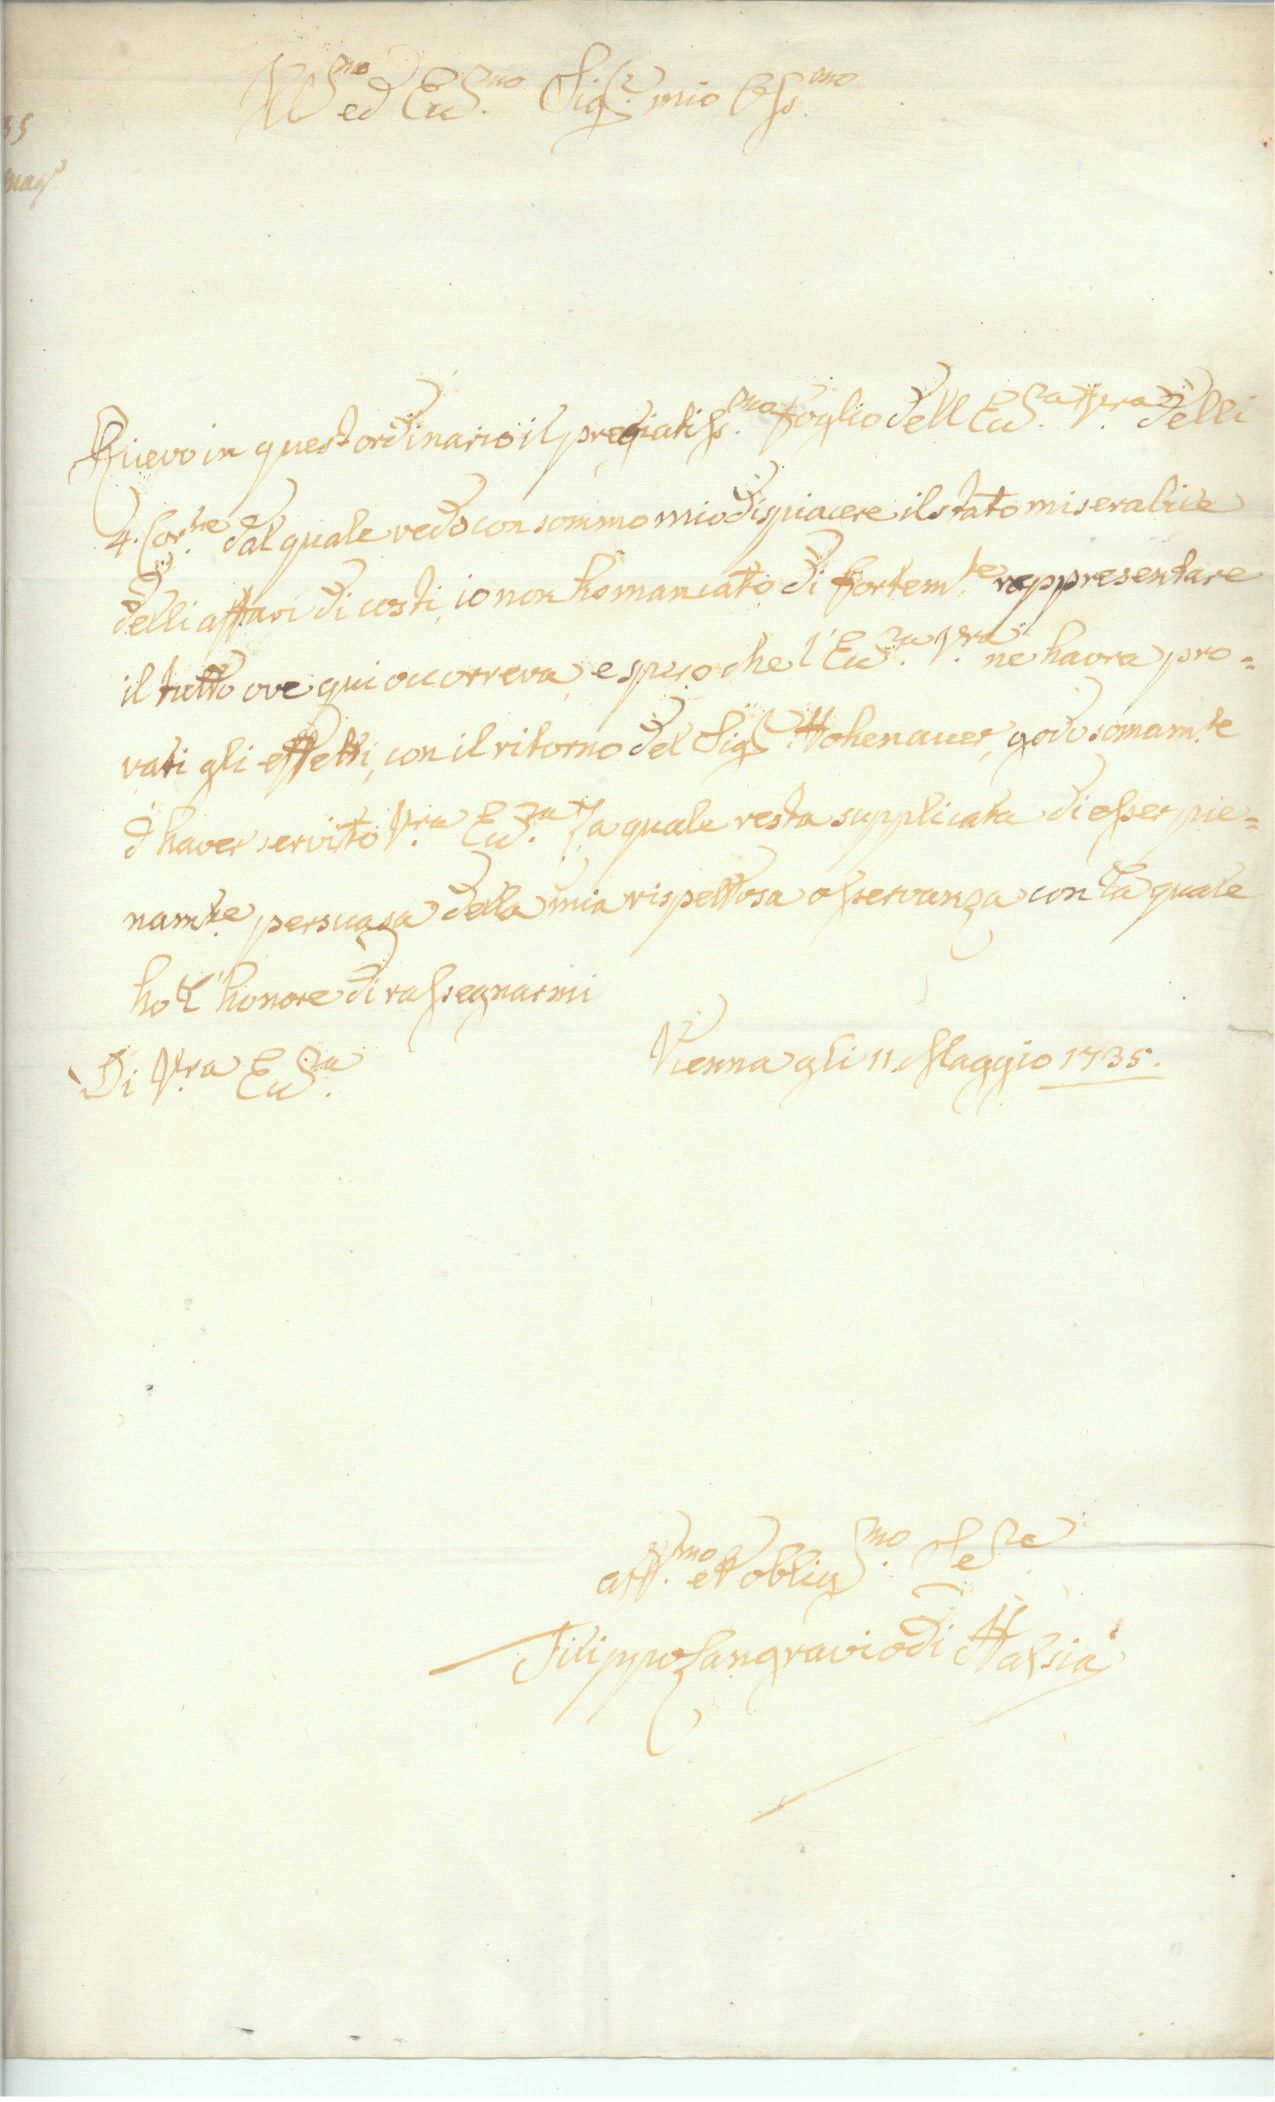 Ill.mo ed Ecc.mo Sig.r mio Oss.mo
35
Mag.
Ricevo in quest ordinario il pregiatiss.mo foglio dell Ecc.za V.ra delli
4. Cor.te dal quale vedo con sommo mio dispiacere il stato miserabile
delli affari di costi, io non ho mancato di fortem.te rappresentare
il tutto ove qui occorreva, e spero che l'Ecc.za V.ra ne havra pro=
vati gli effetti, con il ritorno del Sig.r Hohenauer, godo somam.te
d'haver servito V.ra Ecc.za la quale resta supplicata di esser pie=
nam.te persuasa della mia rispettosa osservanza con la quale
ho l'honore di rassegnarmi
Di V.ra Ecc.za
Vienna gli 11. Maggio 1735.
aff.mo et oblig.mo Se.re
Filippo Langravio di Hassia